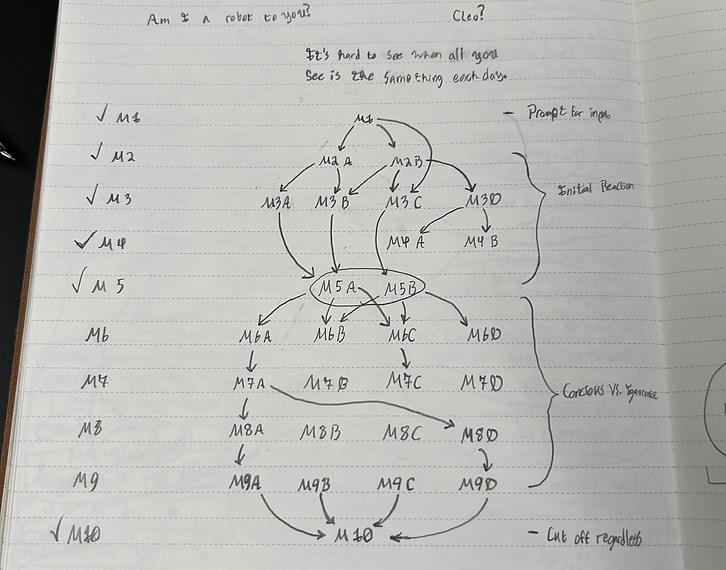 Am I a robot to you?
Cleo?
It's hard to see when all you
See is the same thing each day.
✓ M1
M1
- Prompt for input
✓ M2
M2A M2B
✓ M3
M3A M3B M3C M3D
Initial Reaction
✓ M4
M4A M4B
✓ M5
M5A M5B
M6
M6A M6B M6C M6D
M7
M7A M7B M7C M7D
Concious Vs. Ignorance
M8
M8A M8B M8C M8D
M9
M9A M9B M9C M9D
✓ M10
M10
- Cut off regardless